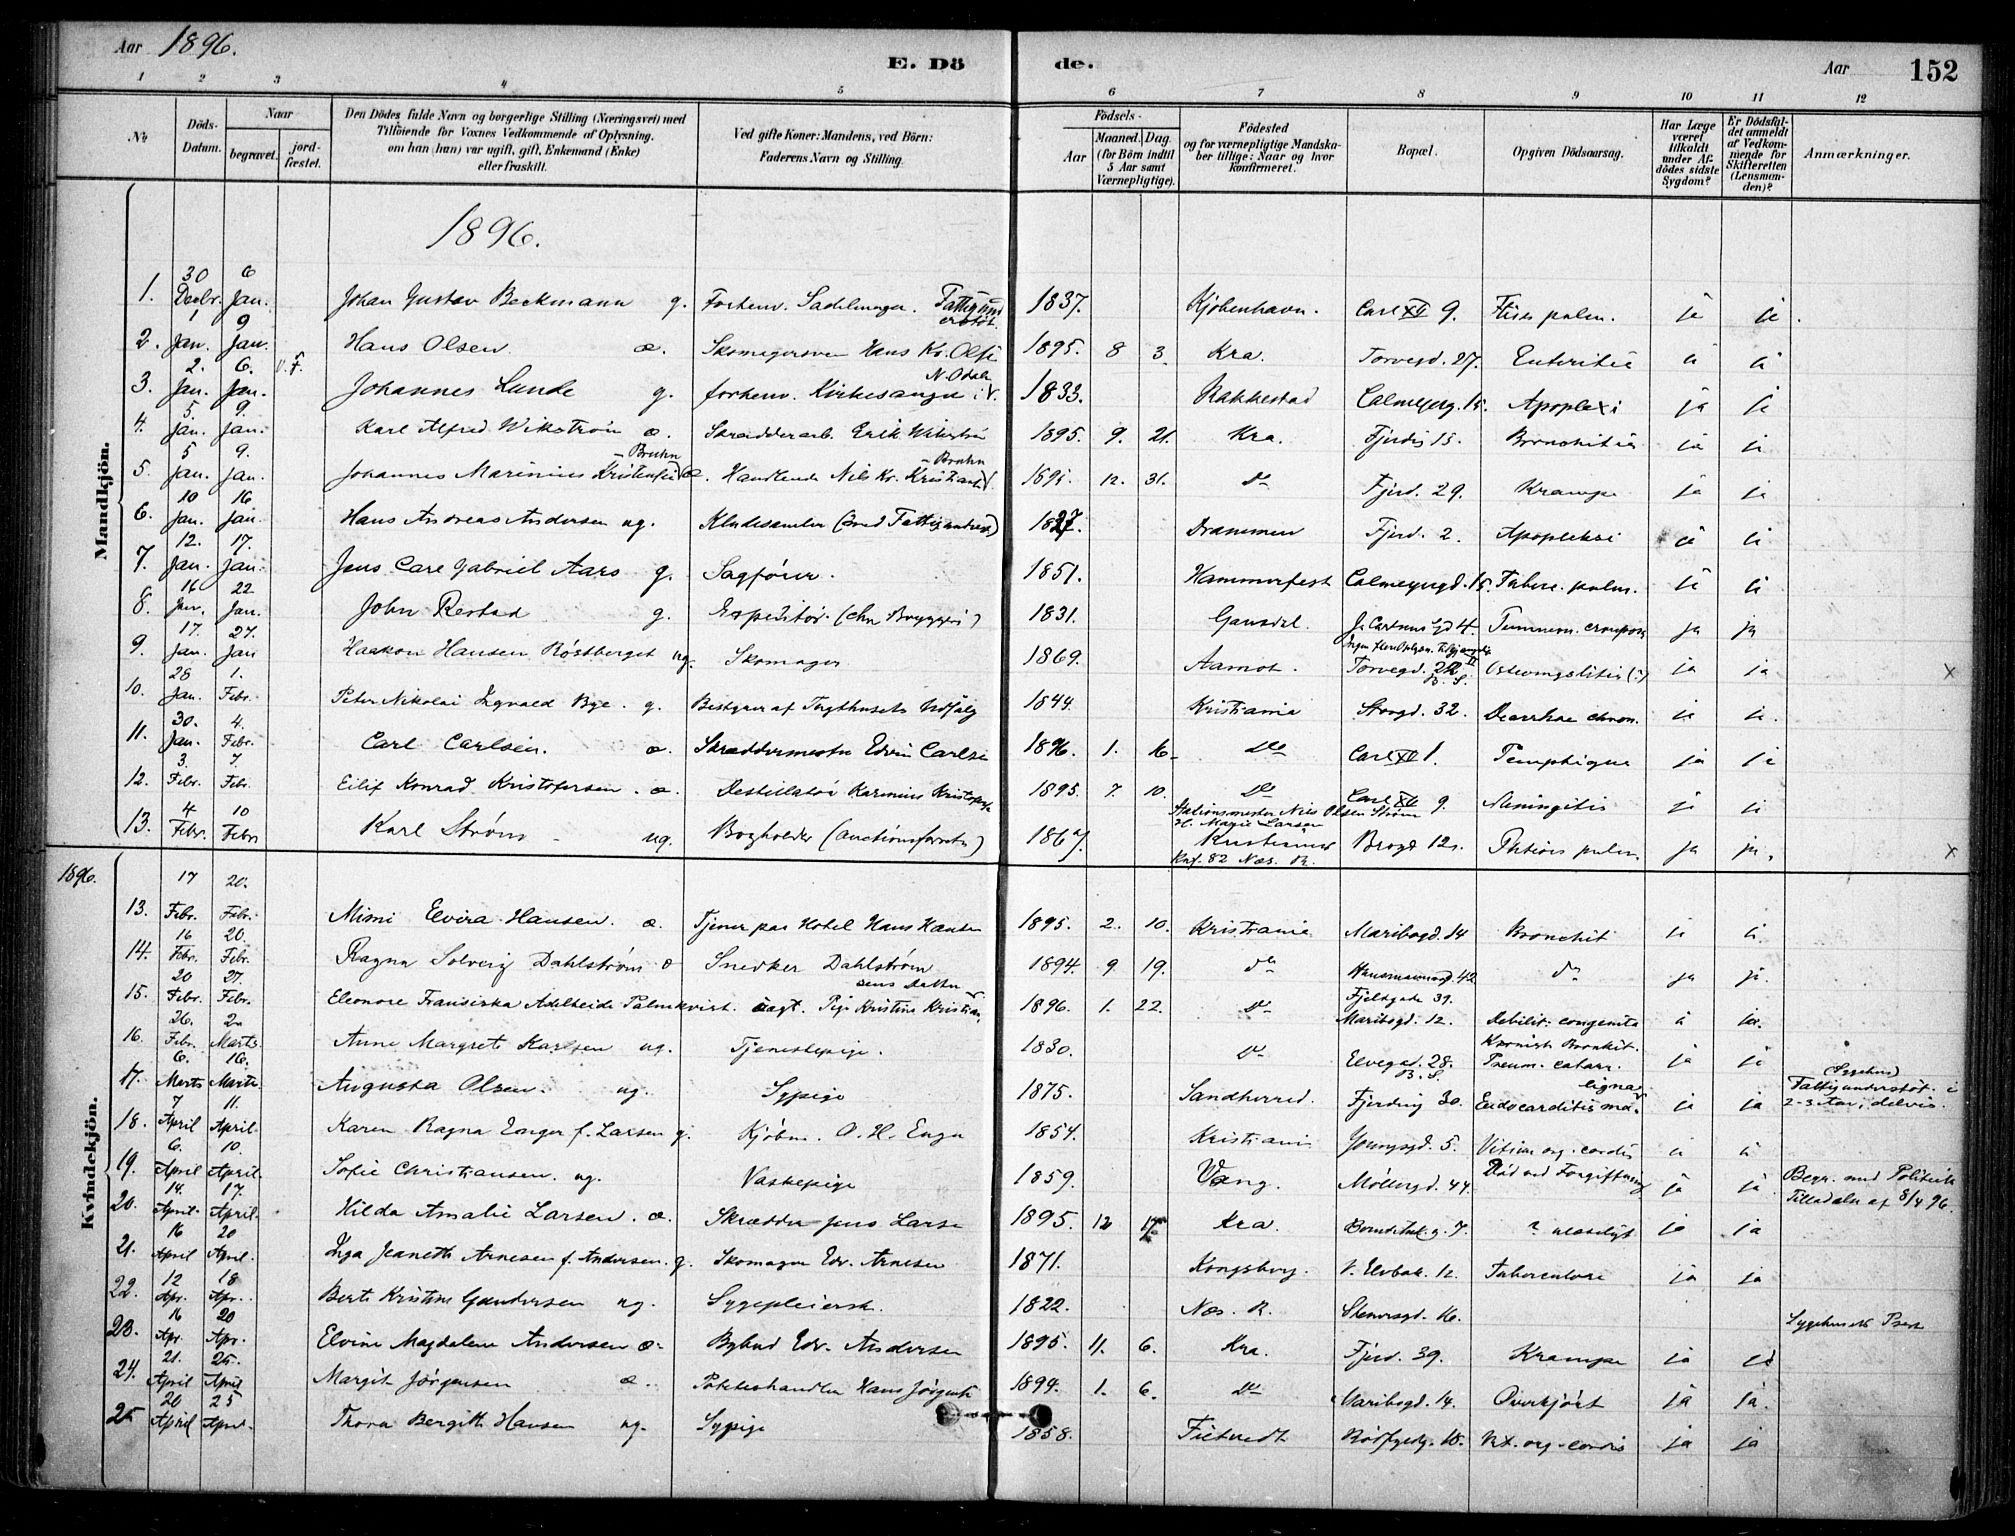 Aar 1896.
E. Dö de.
Aar 152
1 2 3 4 5 6 7 8 9 10 11 12
No
Döds-Datum.
Naar
begravet. jord-fæstet.
Den Dödes fulde Navn og borgerlige Stilling (Næringsvei) med
Tilföiende for Voxnes Vedkommende af Oplysning,
om han (hun) var ugift, gift, Enkemand (Enke)
eller fraskilt.
Ved gifte Koner: Mandens, ved Börn:
Faderens Navn og Stilling.
Födsels-
Aar Maaned. Dag.
(for Börn indtil
5 Aar samt
Værnepligtige).
Födested
og for værnepligtige Mandska-
ber tillige: Naar og hvor
konfirmeret.
Bopæl.
Opgiven Dödsaarsag.
Har Læge
været
tilkaldt
under Af-
dödes sidste
Sygdom?
Er Dödsfal-
det anmeldt
af Vedkom-
mende for
Skifteretten
(Lensman-
den)?
Anmærkninger.
Mandkjön.
1896.
1. 30 Decbr. 6 Jan. Johan Gustav Beckmann g. Forhenv. Sadelmager. 1837. Kjöbenhavn. Carl XII 9. ja ja
2. 1 Jan. 9 Jan. Hans Olsen æ. Skomagersven Hans Kr. Olse 1895. 8 3 Kra. Torvegd. 27. Enteritis
3. 2. Jan. 6. Jan. Johannes Lunde g. forhenv. Kirkesanger N. Odal 1833. Rakkestad Calmeyerg. 15. Apoplexi ja ja
4. 5. Jan. 9. Jan. Karl Alfred Wikström æ. Skrædderarb. Erik Wikström 1895. 9. 21. Kra. Fjerdg 15. Bronchitis ja ja
5. 5 Jan. 9. Jan. Johannes Marinius Kristensen - Bruhn æ. Handlende Nils Kr. Kristensen - Bruhn 1895. 12. 31. Do Fjerd. 29. Krampe ja ja
6. 10 Jan. 16 Jan. Hans Andreas Andersen ug. Kludesamler 1827. Drammen Fjerd. 2. Apopleksi ja ja
7. 12. Jan. 17. Jan. Jens Carl Gabriel Aars g. Sagfører. 1851. Hammerfest Calmeyergd. 15. Tuberc. pulm. ja ja
8. 16 Jan. 22 Jan. John Restad g. Expeditör. (Chra Bryggeri) 1831. Gausdal. ja ja
9. 17. Jan. 27. Jan Haakon Hansen Röstberget ug. Skomager 1869. Aamot. Torvegd. 22 B. S. ja ja x
10. 28 Jan. 1. Febr. Peter Nikolai Ingvald Bye. g. Bestyrer af Tugthusets Udsalg 1844. Kristiania Storgd. 32. Diarrhoe chron. ja ja.
11. 30. Jan. 4. Febr. Carl Carlsen. æ. Skræddermester Edvin Carlsen 1896. 1. 16 Do Carl XII 1. Pemphigus ja ja
12. 3. Febr. 7. Febr. Eilif Konrad Kristofersen. æ. Destillatör Karinius Kristofersen 1895. 7. 10. Do Carl XII 9. Meningitis ja ja
13. 4 Febr. 10 Febr Karl Ström ug. Bogholder (Auctionsforretn) 1867. Stationsmester Nils Olsen Ström H. Marie Larsen Kristiania Knf. 82 Næs. R. Brogd 12. Phtisis pulm. ja ja. x
1896.
Kvindekjön.
13. 17 Febr. 20. Febr. Mimi Elvira Hansen. æ. Tjener paa Hotel Hans Hansen 1895. 2. 10. Kristiania Maribogd. 14 Bronchit ja
14. 16 Febr. 20. Febr. Ragna Solveig Dahlström Snedker Dahlström 1894. 9 19. do Hausmannsgd. 42 do ja ja
15. 20 Febr. 27. Febr. Eleonore Fransiska Adelheide Palmkvist. uægt. Pige Kristine Kristian 1896. 1. 22. Do Fjeldgade 39. Maribogd. 12. Debilit. congenita
16. 26. Febr. 2. Marts. Anne Margrete Karlsen ug. Tjenestepige. 1830. Do Elvegd. 28. B. S. Kronisk Bronkit. Pneum. catarr. ja ja
17. 6. Marts 16. Marts Augusta Olsen. ug. Sypige 1875. Sandherred. Fjerding 30. Endocarditis malignav ja ja (Sygehus) Fattigunderstöt. i 2-3 Aar, delvis.
18. 7 April 11. April. Karen Ragna Enger f. Larsen g. Kjöbm. O. H. Enger 1854. Kristiania Youngsgd. 5. Vitium org. cordis
19. 6. April 10. April. Sofie Christiansen. ug. Vaskepige 1859. Vang. Möllergd. 44. Död ved Forgiftning ja ja Begr. med Politiets Tilladelse af 8/4 96.
20. 14. April. 17. April. Hilda Amalie Larsen. æ. Skrædder Jens Larse 1895. 12 17 Kra. ? ulæseligt ja ja
21. 16 April 20 April. Inga Jeanette Arnesen f. Andersen. g. Skomager Edv. Arnesen 1871. Kongsberg. V. Elvbak. 12. Tuberculose ja ja
22. 12 Apr. 18 Apr. Berte Kristine Gundersen ug. Sygepleiersk. 1822. Næs. R. Stenersgd. 16.
23. 16 Apr. 20 Apr. Elvine Magdalene Andersen æ. Bybud Edv. Andersen 1895. 11. 6. Kra. Fjerd. 39. Krampe ja ja Sygehusets Præst
24. 21. April 25. April Margit Jörgensen æ. Hans Jörgensen 1894. 1. 6. Do Maribogd. 14. Overkjört ja ja.
25 20 April 25 April. Thora Bergitte Hansen ug. Sypige 1858. Vit. org. cordis ja ja